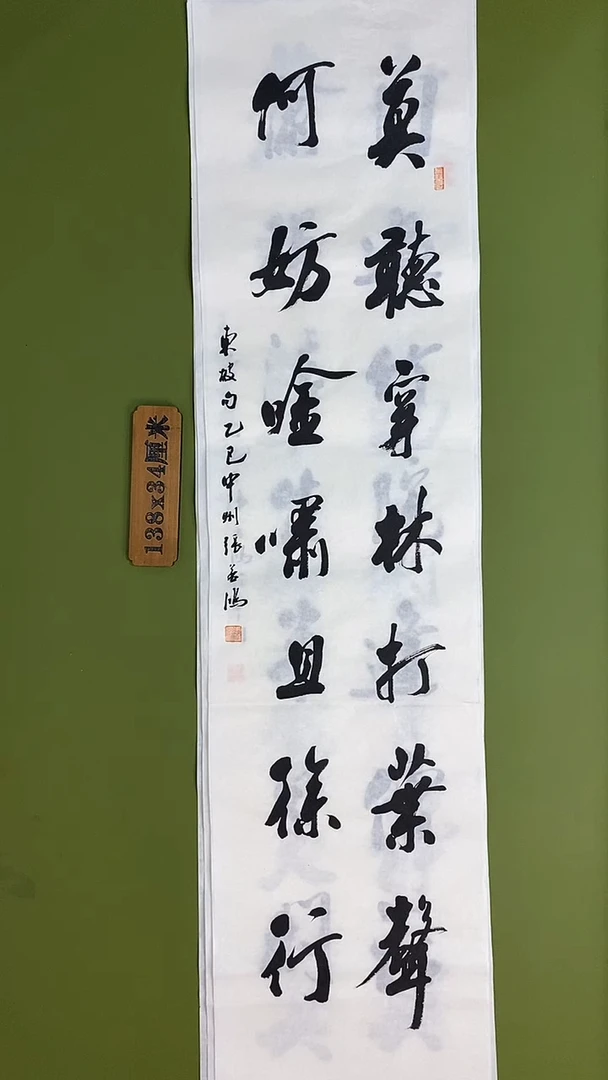 莫聽穿林打葉聲
何妨唫嘯且徐行
東坡句乙巳中州張鴻
138x34厘米